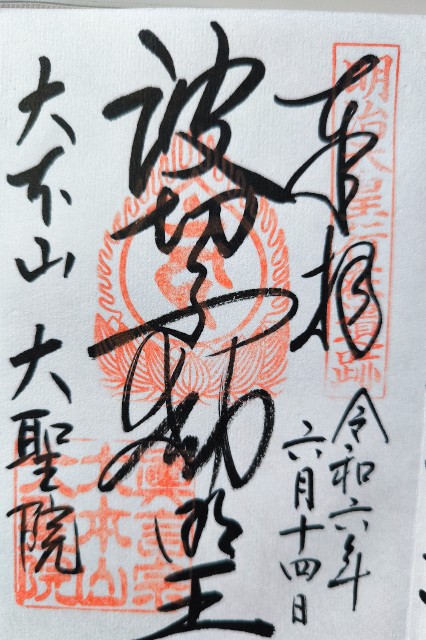 明治天皇 遺跡
奉拝
令和六年
六月十四日
波切不動明王
大本山 大聖院
眞言宗
大本山